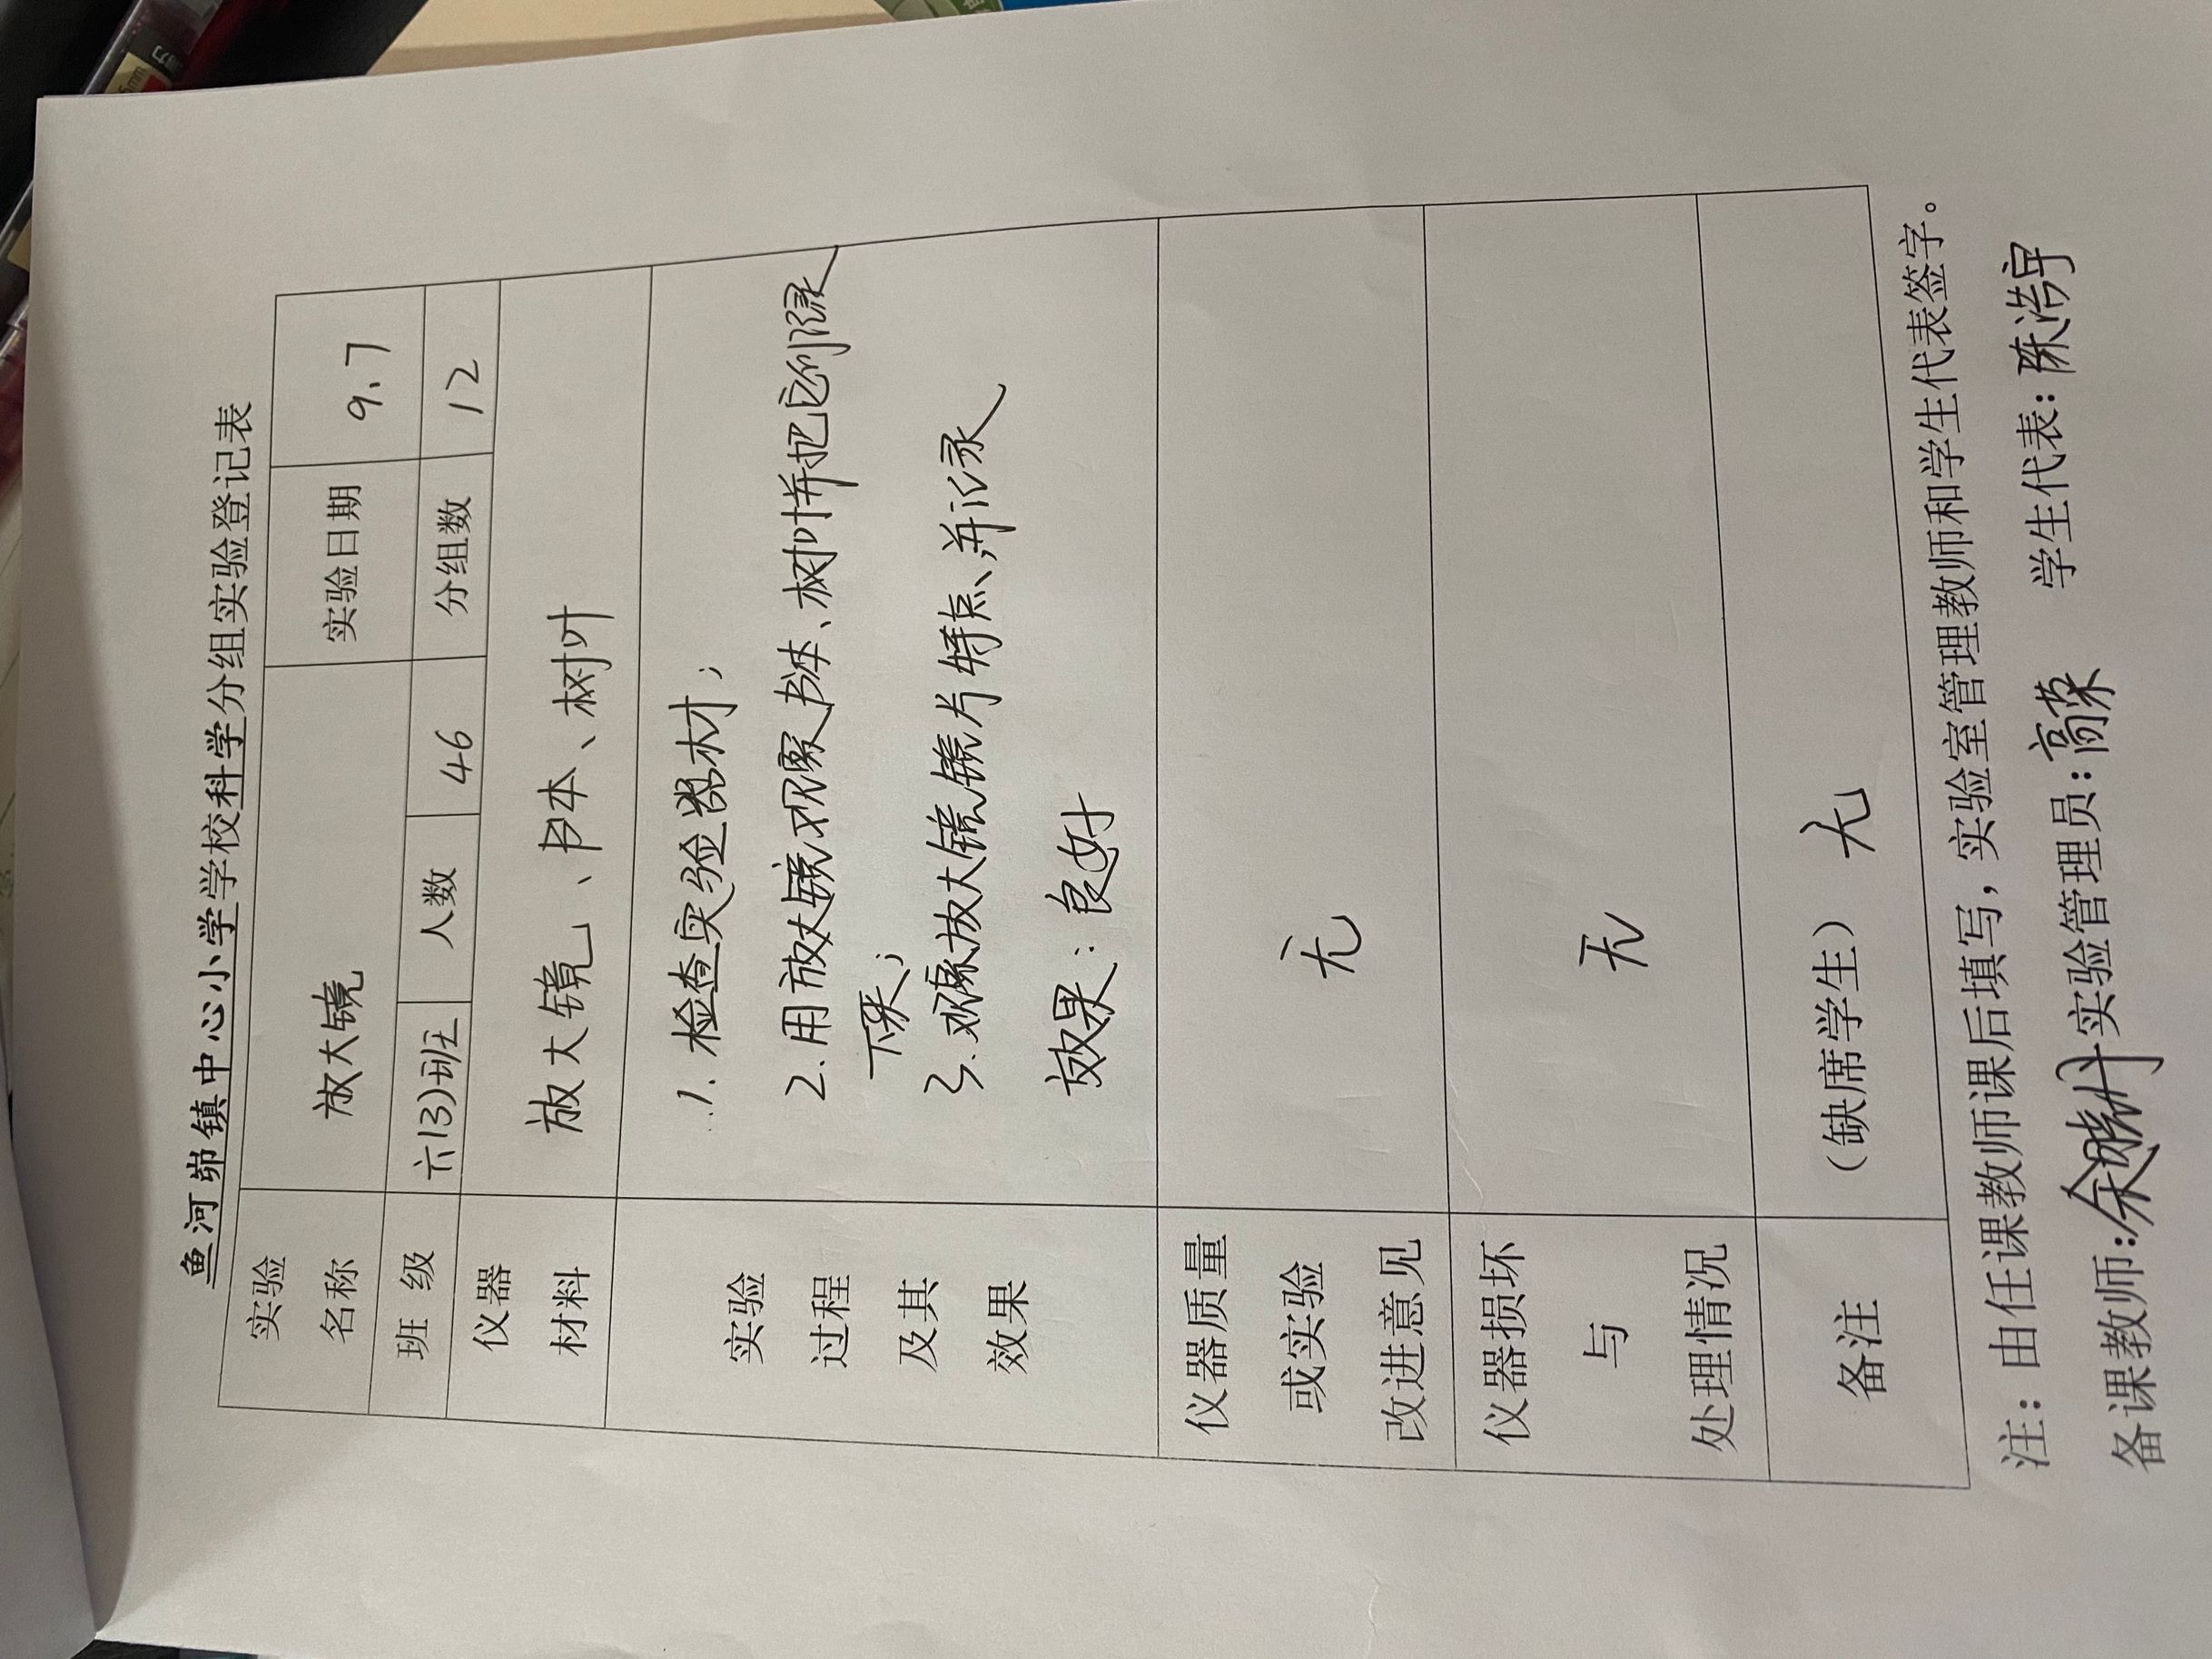 鱼河峁镇中心小学学校科学分组实验登记表
实验名称 放大镜 实验日期 9.7
班 级 六(3)班 人数 46 分组数 12
仪器材料 放大镜、书本、树叶
实验过程及其效果
1.检查实验器材；
2.用放大镜观察书本、树叶并把它们记录
下来；
3.观察放大镜镜片特点、并记录
效果：良好
仪器质量或实验改进意见 无
仪器损坏与处理情况 无
备注 （缺席学生） 无
注：由任课教师课后填写，实验室管理教师和学生代表签字。
备课教师： 实验管理员：高荣 学生代表：陈浩宇